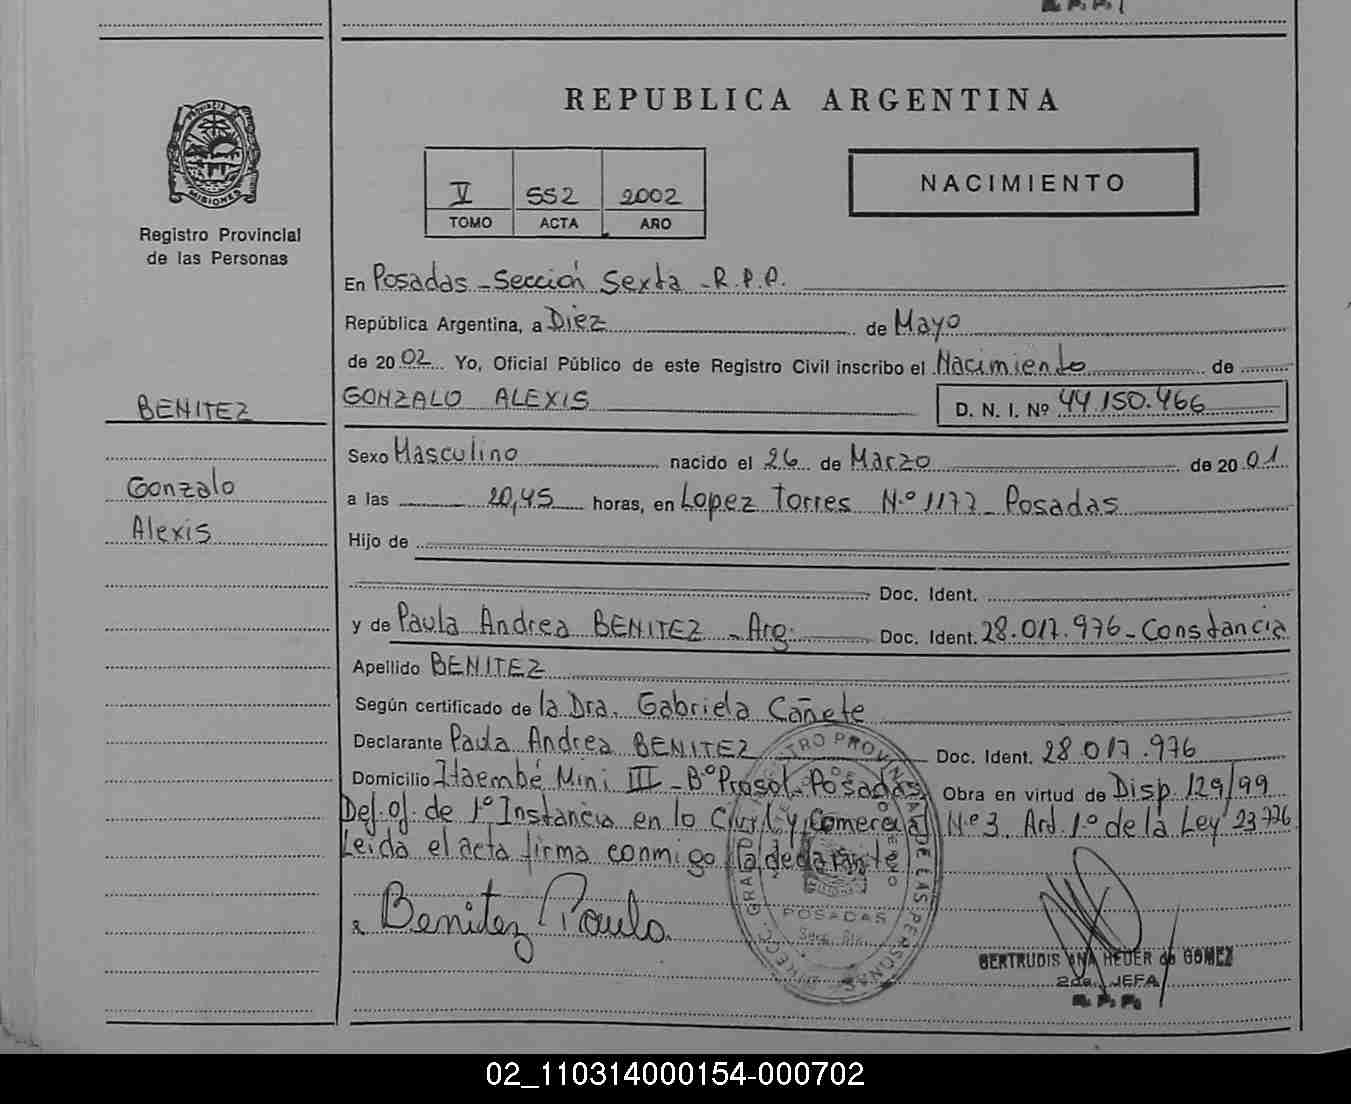 REPUBLICA ARGENTINA
PROVINCIA DE
MISIONES
Registro Provincial
de las Personas
V 552 2002
TOMO ACTA AÑO
NACIMIENTO
En Posadas - Sección Sexta - R.P.P.
República Argentina, a Diez de Mayo
de 20 02 Yo, Oficial Público de este Registro Civil inscribo el Nacimiento de
GONZALO ALEXIS D. N. I. Nº 44.150.466
BENITEZ
Gonzalo
Alexis
Sexo Masculino nacido el 26 de Marzo de 20 01
a las 20,45 horas, en Lopez Torres N.º 1177 - Posadas
Hijo de
Doc. Ident.
y de Paula Andrea BENITEZ - Arg. Doc. Ident. 28.017.976 - Constancia
Apellido BENITEZ
Según certificado de la Dra. Gabriela Cañete
Declarante Paula Andrea BENITEZ Doc. Ident. 28 017.976
Domicilio Itaembé Mini III - Bº Prosol - Posadas Obra en virtud de Disp 129/99
Def. Of. de 1º Instancia en lo Civil y Comercial Nº 3 Art. 1.º de la Ley 23.776
Leida el acta firma conmigo la declarante
Benitez Paula
POSADAS
GERTRUDIS ANA HEUER de GOMEZ
2da. JEFA
R. P. P.
02_110314000154-000702